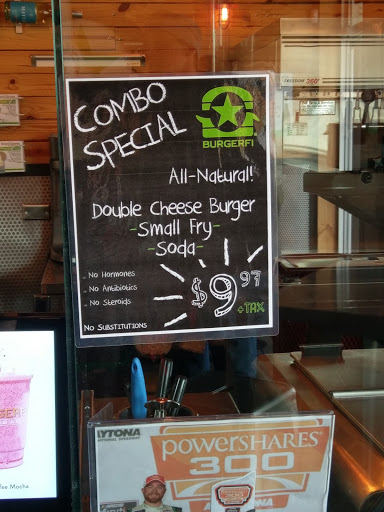 COMBO
SPECIAL
BURGERFI
All-Natural!
Double Cheese Burger
-Small Fry-
-Soda-
No Hormones
No Antibiotics
No Steroids
$9.97
+TAX
No Substitutions
AYTONA
powershares
300
Mocha